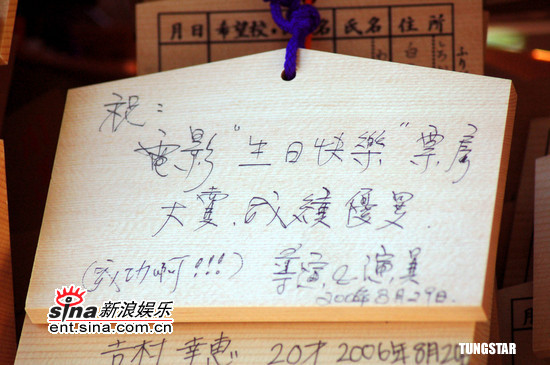 月日 希望校・ 名 氏名 住所
祝：
電影"生日快樂"票房
大賣.成績優異.
( 功啊!!!) 導演&演員
2006年8月29日.
sina 新浪娱乐
ent.sina.com.cn
吉村 幸恵 20才 2006年8月20
TUNGSTAR